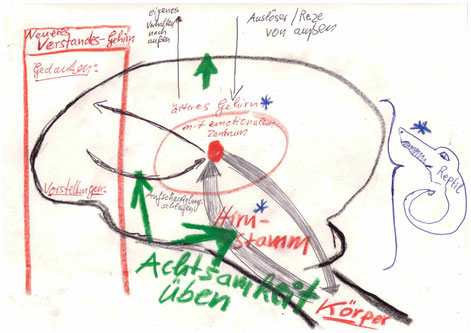 Neueres
Verstandes-Gehirn
Gedanken:
Vorstellungen:
eigenes
Verhalten
nach
außen
Auslöser/Reize
von außen
älteres Gehirn*
mit emotionalem
Zentrum
Aufschaukelungs-
schleifen
Hirn-*
Stamm
Achtsamkeit
üben
Körper
*
Reptil